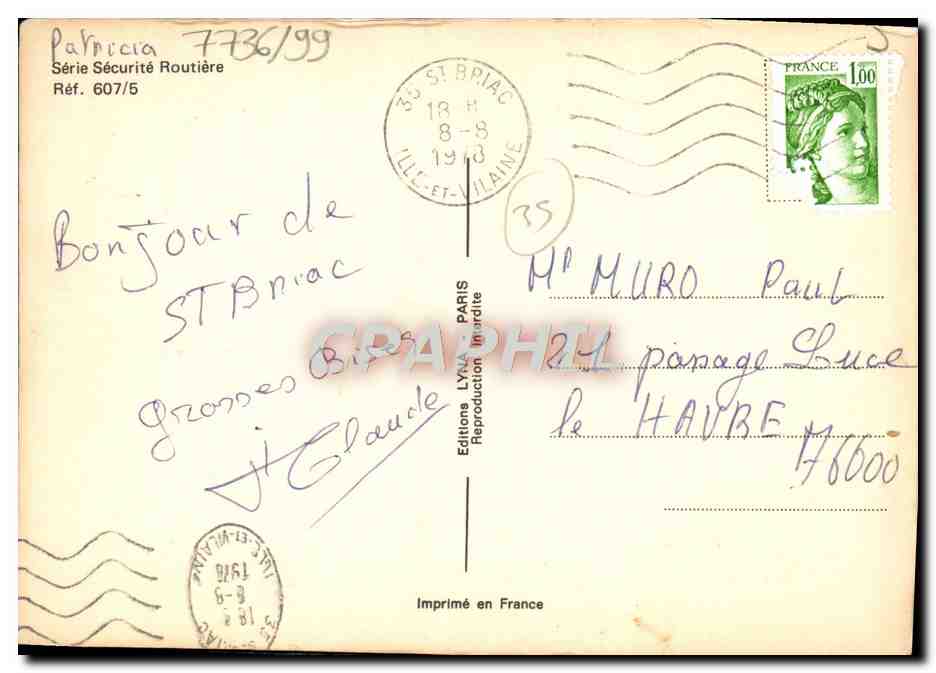 Patricia 7736/99
Série Sécurité Routière
Réf. 607/5
35 ST BRIAC
18 H
8-8
1978
ILLE-ET-VILAINE
FRANCE 1,00
35
Bonjour de
ST Briac
Grosses Bises
J Claude
Editions LYNA - PARIS
Reproduction interdite
Mr MURO Paul
21 passage Luce
le HAVRE
76600
CPAPHIL
35 ST BRIAC
18 H
8-8
1978
ILLE-ET-VILAINE
Imprimé en France